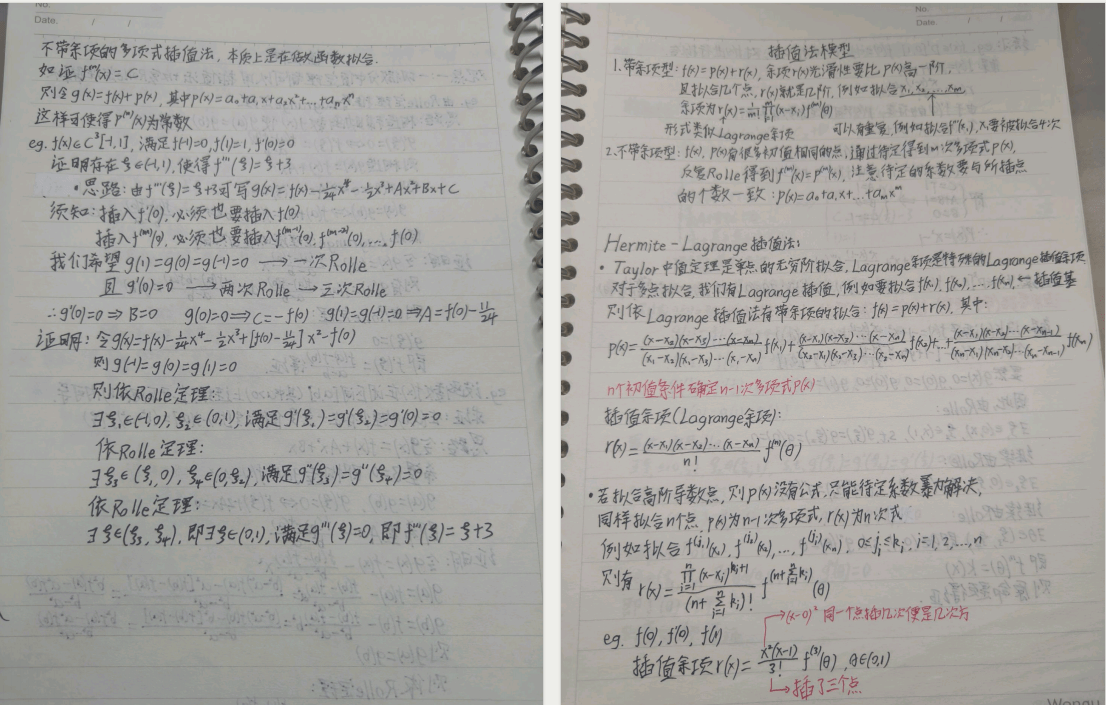 No.
Date.
不带余项的多项式插值法,本质上是在做函数拟合.
如证 f⁽ⁿ⁾(x)=C
则令g(x)=f(x)+p(x),其中p(x)=a₀+a₁x+a₂x²+…+aₙxⁿ
这样可使得p⁽ⁿ⁾(x)为常数
eg. f(x)∈C³[-1,1],满足f(-1)=0,f(1)=1,f'(0)=0
证明存在ξ∈(-1,1),使得f'''(ξ)=ξ+3
•思路:由f'''(ξ)=ξ+3可写g(x)=f(x)-1/24x⁴-1/2x³+Ax²+Bx+C
须知:插入f'(0),必须也要插入f(0)
插入f⁽ᵐ⁾(0),必须也要插入f⁽ᵐ⁻¹⁾(0),f⁽ᵐ⁻²⁾(0),…,f(0)
我们希望g(1)=g(0)=g(-1)=0 →一次Rolle
且g'(0)=0 →两次Rolle→三次Rolle
∴g'(0)=0⇒B=0 g(0)=0⇒C=-f(0) g(1)=g(-1)=0⇒A=f(0)-11/24
证明:令g(x)=f(x)-1/24x⁴-1/2x³+[f(0)-11/24]x²-f(0)
则g(-1)=g(0)=g(1)=0
则依Rolle定理:
∃ξ₁∈(-1,0),ξ₂∈(0,1),满足g'(ξ₁)=g'(ξ₂)=g'(0)=0
依Rolle定理:
∃ξ₃∈(ξ₁,0),ξ₄∈(0,ξ₂),满足g''(ξ₃)=g''(ξ₄)=0
依Rolle定理:
∃ξ∈(ξ₃,ξ₄),即∃ξ∈(0,1),满足g'''(ξ)=0,即f'''(ξ)=ξ+3
No.
Date.
插值法模型
1.带余项型:f(x)=p(x)+r(x),余项r(x)光滑性要比p(x)高一阶,
且拟合几个点,r(x)就是几阶,例如拟合x₁,x₂,…,xₘ
余项为r(x)=1/m! ∏(x-xᵢ)f⁽ᵐ⁾(θ)
形式类似Lagrange余项 可以有重复,例如拟合f'''(x₁),x₁要被拟合4次
2.不带余项型:f(x),p(x)有很多初值相同的点,通过待定得到m次多项式p(x),
反复Rolle得到f⁽ᵐ⁾(x)=p⁽ᵐ⁾(x),注意待定的系数要与所插点
的个数一致:p(x)=a₀+a₁x+…+aₘxᵐ
Hermite-Lagrange插值法:
•Taylor中值定理是单点的无穷阶拟合,Lagrange余项是特殊的Lagrange插值余项
对于多点拟合,我们有Lagrange插值,例如要拟合f(x₁),f(x₂),…,f(xₙ),←插值基
则依Lagrange插值法有带余项的拟合:f(x)=p(x)+r(x),其中:
p(x)=(x-x₂)(x-x₃)…(x-xₙ)/(x₁-x₂)(x₁-x₃)…(x₁-xₙ) f(x₁)+(x-x₁)(x-x₃)…(x-xₙ)/(x₂-x₁)(x₂-x₃)…(x₂-xₙ) f(x₂)+…+(x-x₁)(x-x₂)…(x-xₙ₋₁)/(xₙ-x₁)(xₙ-x₂)…(xₙ-xₙ₋₁) f(xₙ)
n个初值条件确定n-1次多项式p(x)
插值余项(Lagrange余项):
r(x)=(x-x₁)(x-x₂)…(x-xₙ)/n! f⁽ⁿ⁾(θ)
•若拟合高阶导数点,则p(x)没有公式,只能待定系数暴力解决,
同样拟合n个点,p(x)为n-1次多项式,r(x)为n次式
例如拟合f⁽ʲ¹⁾(x₁),f⁽ʲ²⁾(x₂),…,f⁽ʲⁱ⁾(xₙ),0≤jᵢ≤kᵢ,i=1,2,…,n
则有r(x)=∏ᵢ₌₁ⁿ(x-xᵢ)^(kᵢ+1)/(n+∑ᵢ₌₁ⁿkᵢ)! f^(n+∑ᵢ₌₁ⁿkᵢ)(θ)
→(x-0)² 同一个点插几次便是几次方
eg. f(0),f'(0),f(1)
插值余项r(x)=x²(x-1)/3! f⁽³⁾(θ),θ∈(0,1)
↳插了三个点